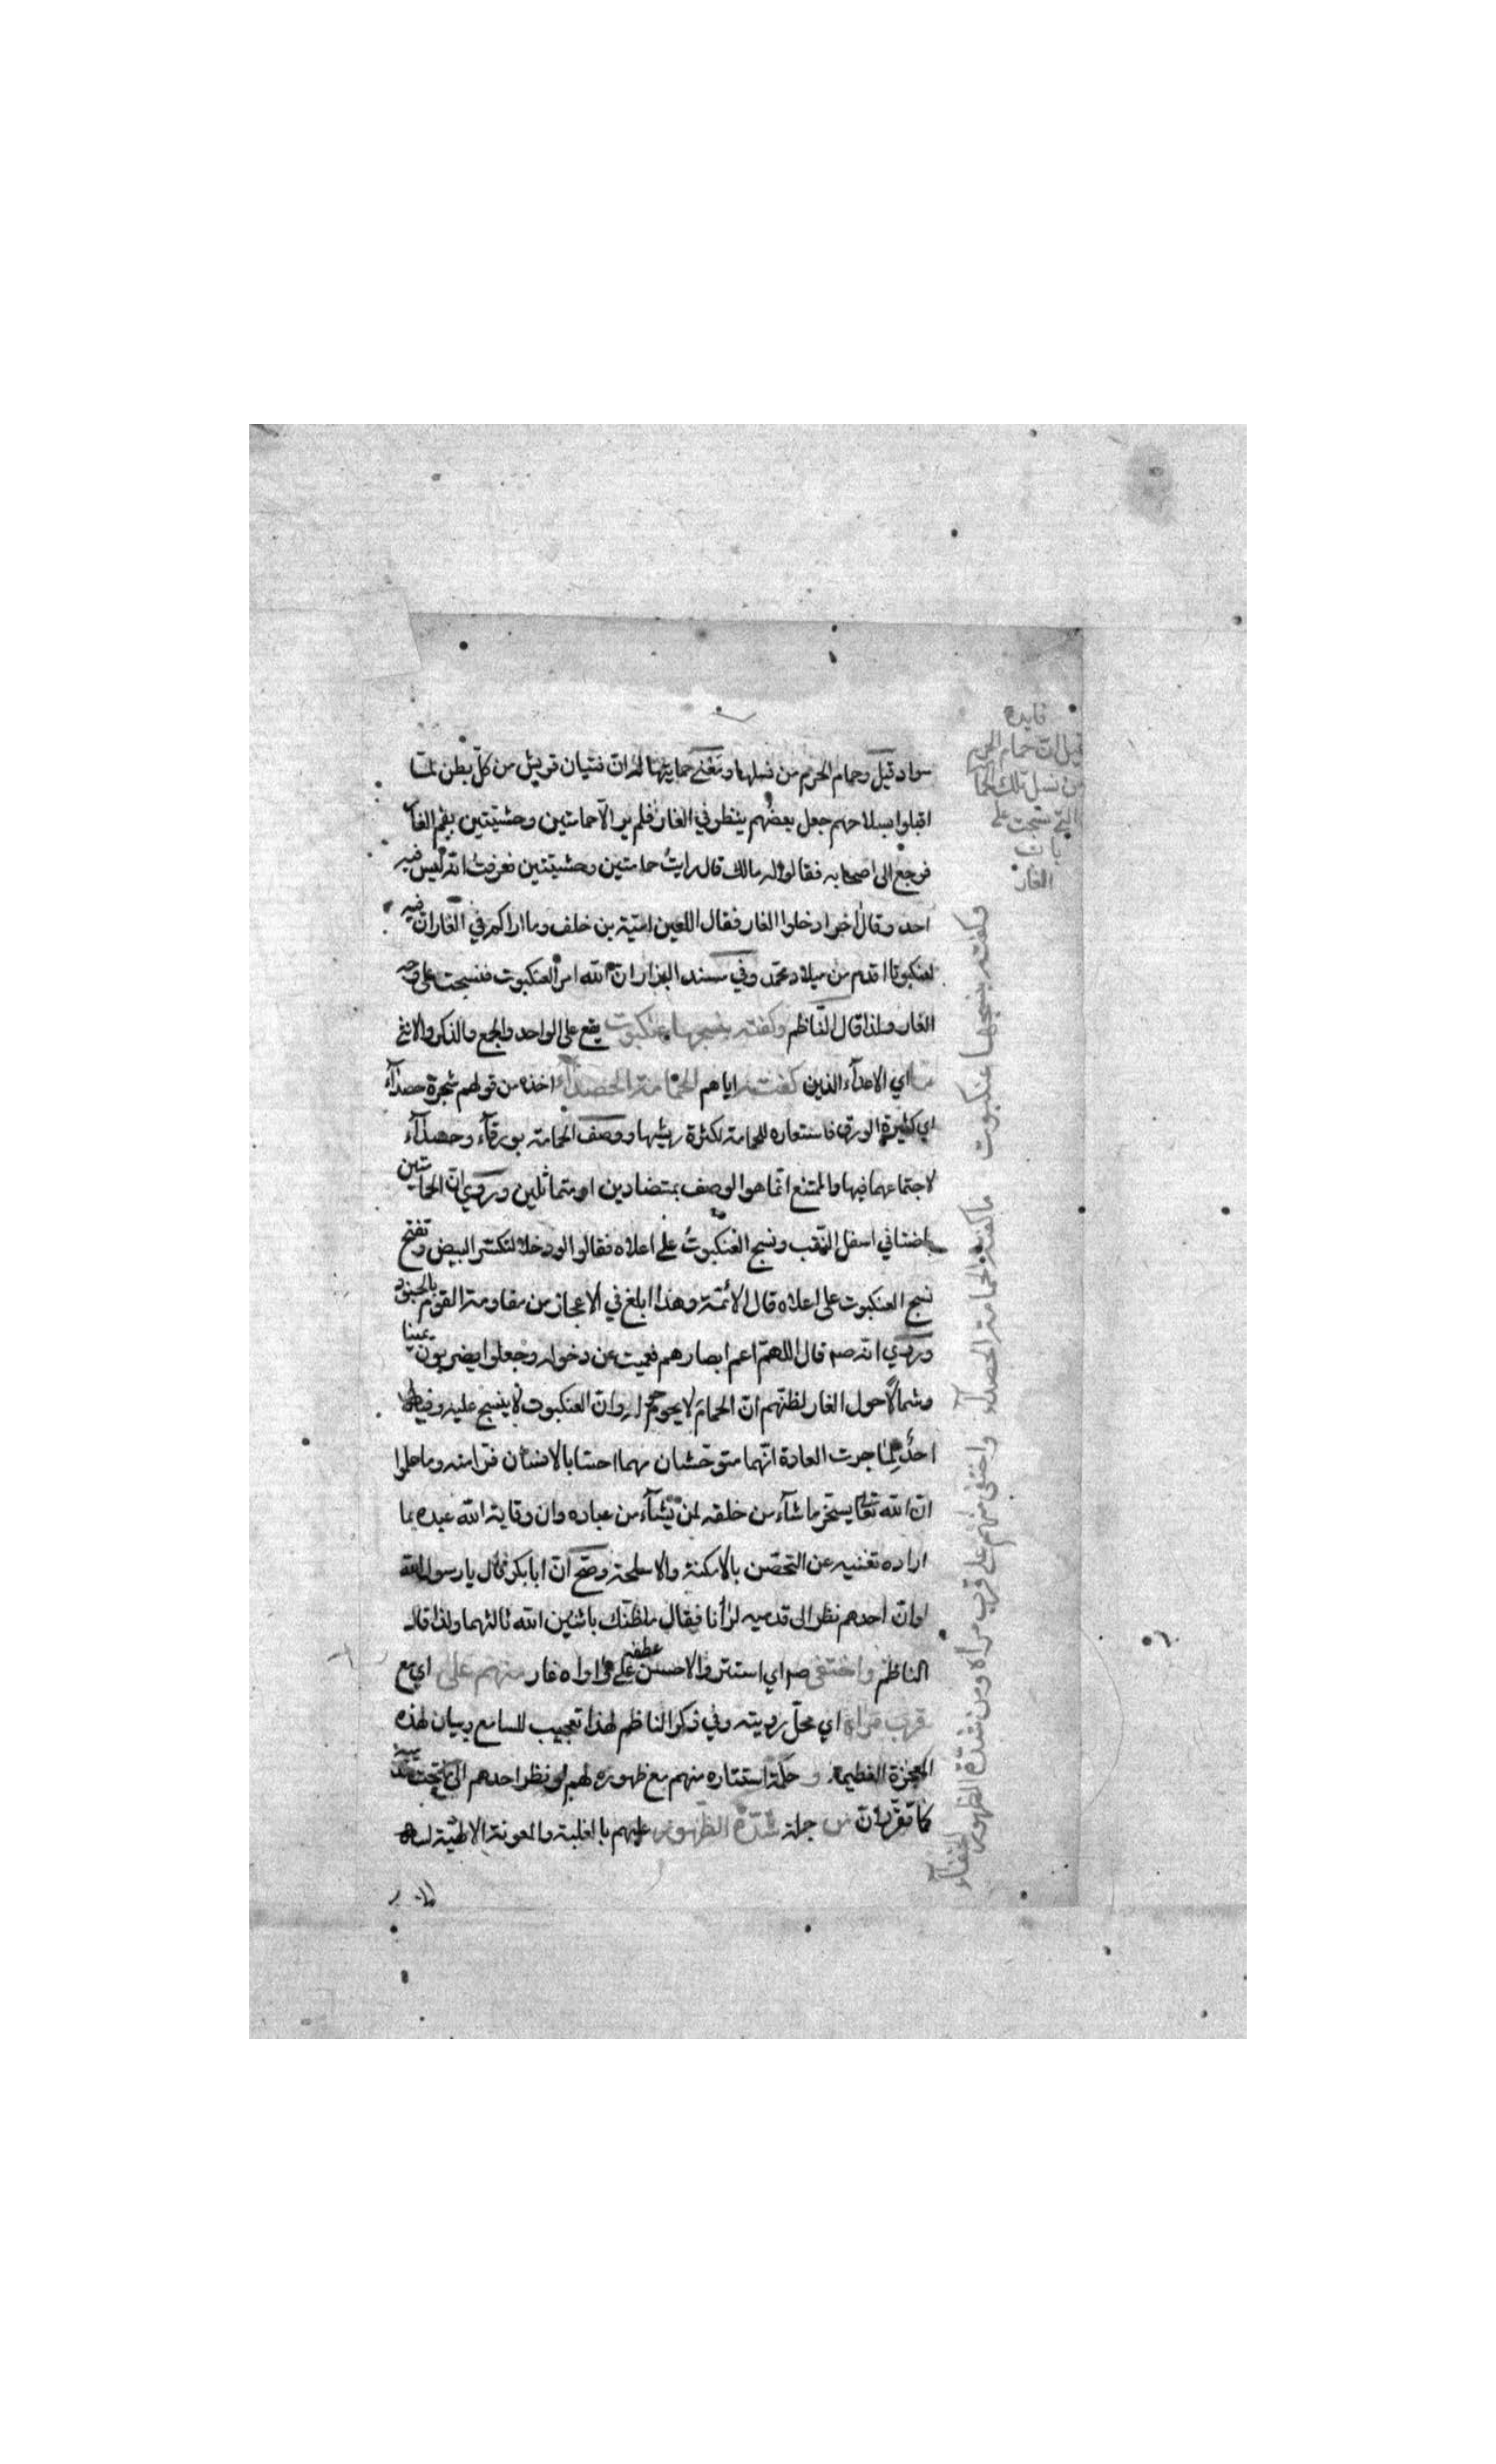 فايدة
قيل ان حمام الحرم
من نسل تلك الحما
التي نسجت على
باب
الغار
سواد قيل وحمام الحرم من نسلها وبمعنى حمايتها له ان فتيان قريش من كل بطن لما
اقبلوا بسلاحهم جعل بعضهم ينظر في الغار فلم ير الا حمامتين وحشيتين بفم الغار
فرجع الى اصحابه فقالوا له مالك قال رايت حمامتين وحشيتين فعرفت انه ليس فيه
احد وقال اخر ادخلوا الغار فقال اللعين امية بن خلف وما اراكم في الغار ان فيه
لعنكبوتا اقدم من ميلاد محمد وفي مسند البزار ان الله امر العنكبوت فنسجت على وجه
الغار ولذا قال الناظم وكفته بنسجها عنكبوت يقع على الواحد والجمع والذكر والانثى
ما اي الاعداء الذين كفته اياهم الحمامة الحصداء اخذه من قولهم شجرة حصداء
اي كثيرة الورق فاستعاره للحمامة لكثرة ريشها ووصف الحمامة بورقاء وحصداء
لاجتماعهما فيها والممتنع انما هو الوصف بمتضادين او متماثلين وروي ان الحمامتين
باضتا في اسفل النقب ونسج العنكبوت على اعلاه فقالوا لو دخلا لتكسر البيض وتفتح
نسج العنكبوت على اعلاه قال الائمة وهذا ابلغ في الاعجاز من مقاومة القوم بالجنود
وروي انه صم قال اللهم اعم ابصارهم فعميت عن دخوله وجعلوا يضربون يمينا
وشمالا حول الغار لظنهم ان الحمام لا يحوم له وان العنكبوت لا ينسج عليه وفيه
احد لما جرت العادة انهما متوحشان مهما احسا بالانسان فرا منه وما علموا
ان الله تعالى يسخر ما شاء من خلقه لمن يشاء من عباده وان وقاية الله عبده بما
اراده تغنيه عن التحصن بالامكنة والاسلحة وصح ان ابا بكر قال يا رسول الله
لو ان احدهم نظر الى قدميه لرآنا فقال ما ظنك باثنين الله ثالثهما ولذا قال
الناظم واختفى صم اي استتر والاحسن عطفه على اواه غار منهم على اي مع
قرب مرآه اي محل رويته وفي ذكر الناظم لهذا تعجيب للسامع وبيان لهذه
المعجزة العظيمة و حكمة استتاره منهم مع ظهوره لهم لو نظر احدهم الى تحت قدميه
كما تقرر ان من جملة شدة الظهور عليهم بالغلبة والمعونة الالهية
وكفته بنسجها عنكبوت ما كفته الحمامة الحصداء واختفى منهم على قرب مرآه ومن شدة الظهور الخفاء